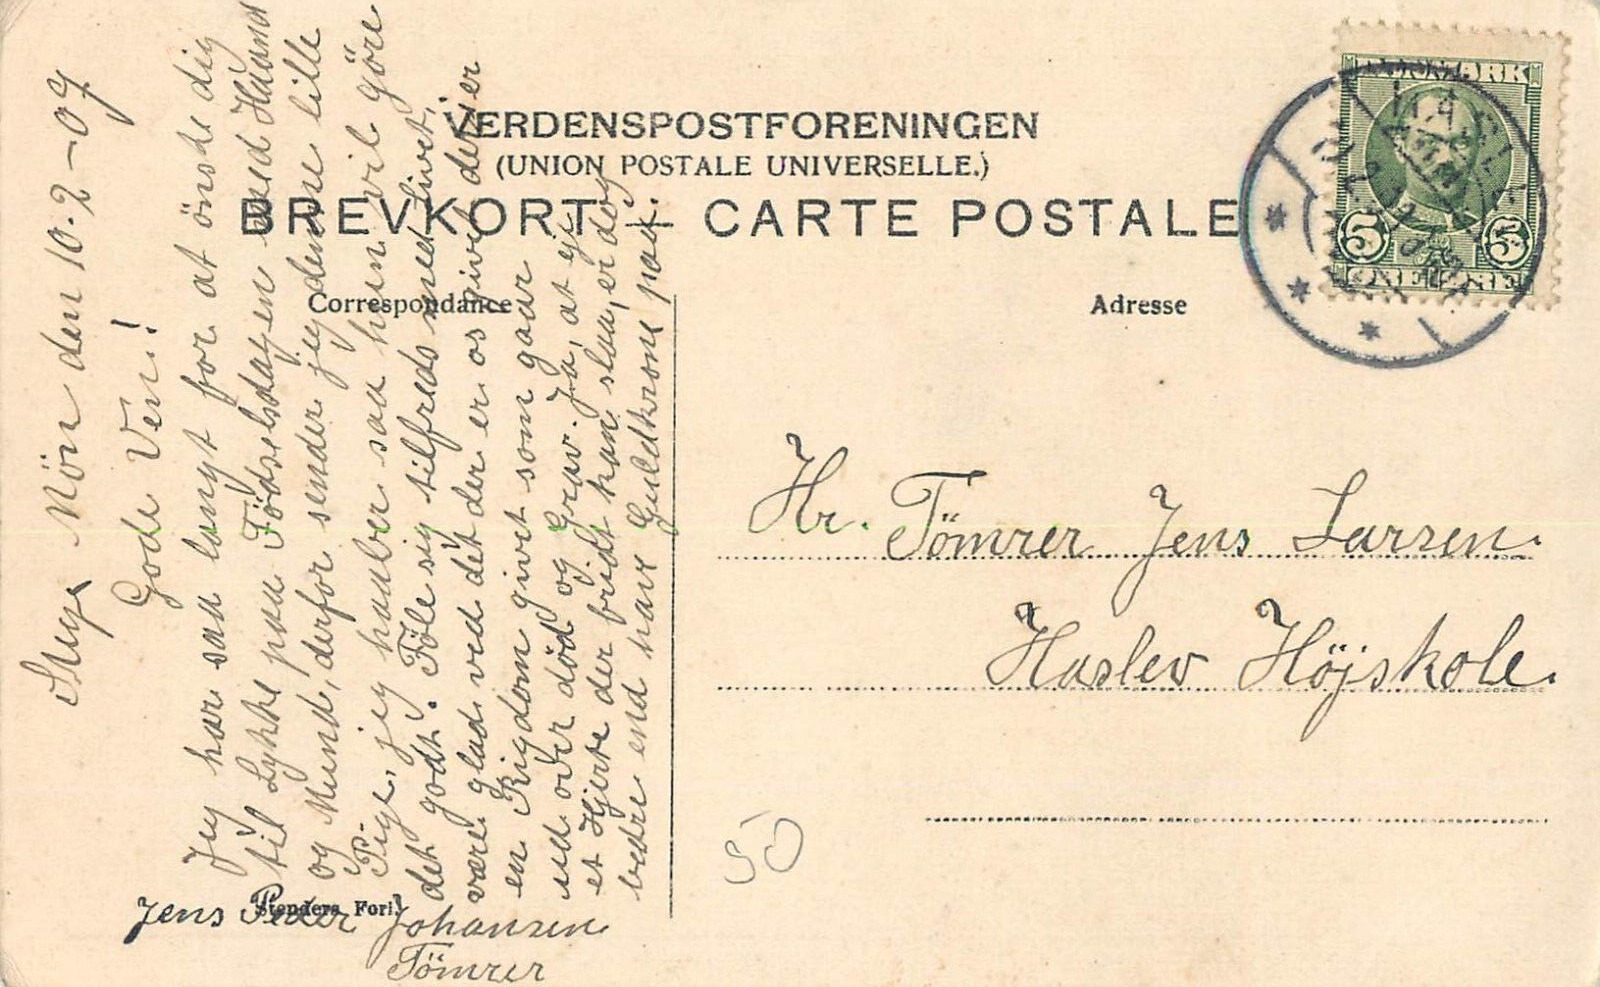 VERDENSPOSTFORENINGEN
(UNION POSTALE UNIVERSELLE.)
BREVKORT. — CARTE POSTALE
Correspondance
Adresse
DANMARK
5 5
HASLEV
Hr. Tömrer Jens Larsen.
Haslev Höjskole.
50
Stege Mön den 10-2-07
Gode Ven!
Jeg har saa langt for at önske dig
til Lykke paa Födselsdagen med Haand
og Mund, derfor sender jeg denne lille
Pige, jeg haaber saa hun vil göre
det godt. Föle sig tilfreds med Livet,
være glad ved det der er os givet det er
en Rigdom givet som gaar
ud over död og Grav. Ja, at eje
et Hjerte der fridt kan slaa, er dog
bedre end have Guldkrone paa.
Jens Peder Johansen
Tömrer
Stenders Forl.